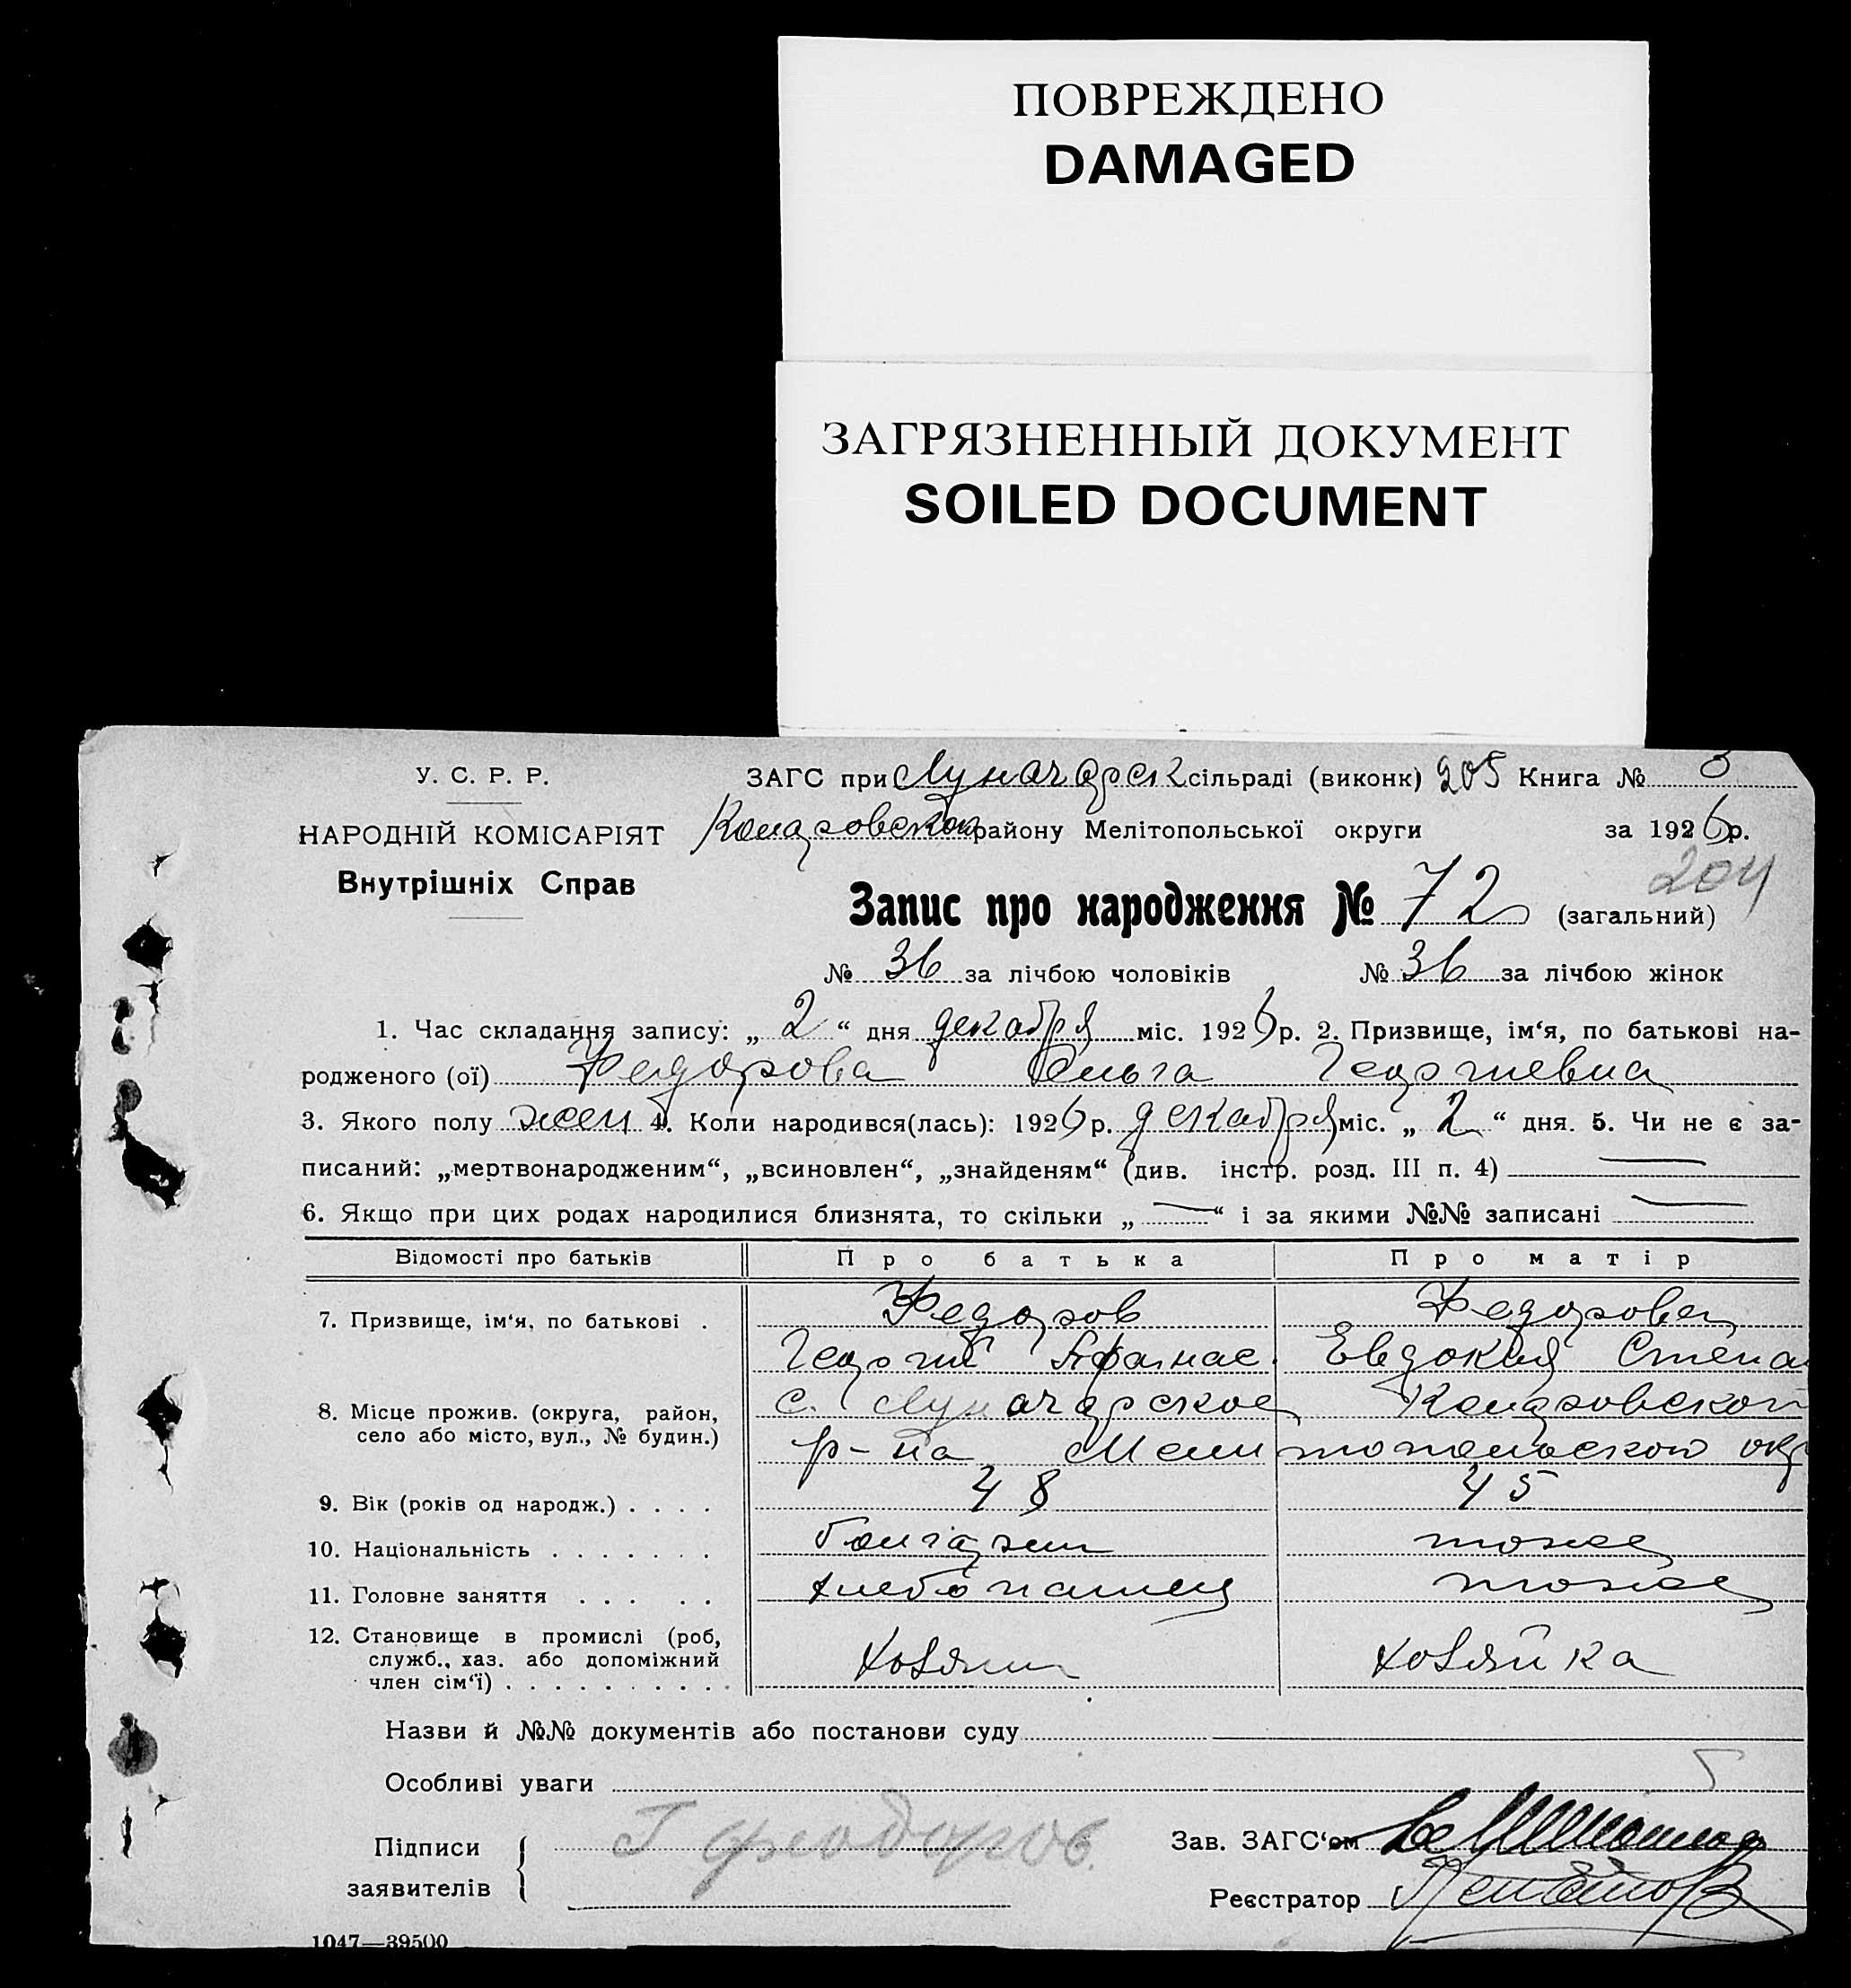 ПОВРЕЖДЕНО
DAMAGED
ЗАГРЯЗНЕННЫЙ ДОКУМЕНТ
SOILED DOCUMENT
У. С. Р. Р. ЗАГС при Луначарск сільраді (виконк) 205 Книга № 3
НАРОДНІЙ КОМІСАРІЯТ району Мелітопольської округи за 1926 р.
204
Внутрішніх Справ
Запис про народження № 72 (загальний)
№ 36 за лічбою чоловіків № 36 за лічбою жінок
1. Час складання запису: „ 2 “ дня декабря міс. 1926 р. 2. Призвище, ім‘я, по батькові на-
родженого (ої) Федорова Ольга Георгиевна
3. Якого полу жен 4. Коли народився(лась): 1926 р. декабря міс. „ 2 “ дня. 5. Чи не є за-
писаний: „мертвонародженим“, „всиновлен“, „знайденям“ (див. інстр. розд. III п. 4) —
6. Якщо при цих родах народилися близнята, то скільки „ — “ і за якими №№ записані —
Відомості про батьків Про батька Про матір
7. Призвище, ім‘я, по батькові . Федоров Федорова
Георгий Афанас. Евдокия Степа
8. Місце прожив. (округа, район, с. Луначарское
село або місто, вул., № будин.) р-на Мелитопольского окр
9. Вік (років од народж.) . . . . 48 45
10. Національність . . . . . . . болгарин тоже
11. Головне заняття . . . . . хлебопашец тоже
12. Становище в промислі (роб, служб., хаз. або допоміжний член сім‘ї) . . . . . . . . . . хозяин хозяйка
Назви й №№ документів або постанови суду
Особливі уваги
Підписи заявителів Г Феодоров.
Зав. ЗАГС‘ом
Реєстратор
1047—39500